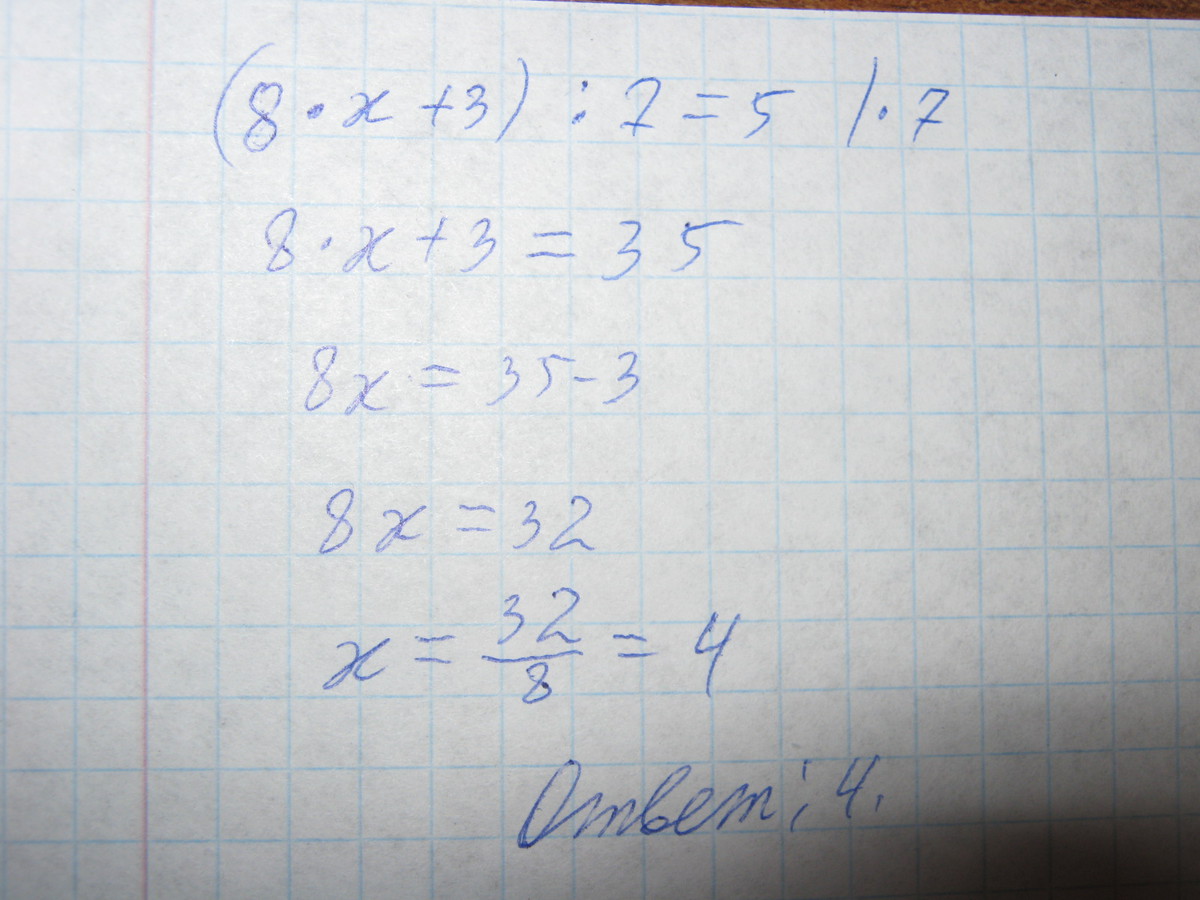 (8·x+3):7=5 |·7
8·x+3=35
8x=35-3
8x=32
x=32/8=4
Ответ: 4.